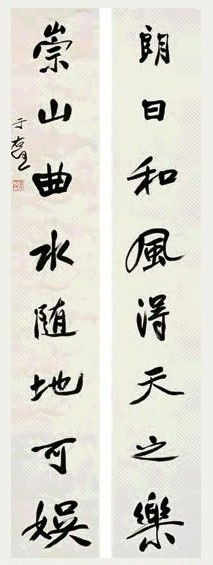 朗日和風得天之樂
崇山曲水隨地可娛
于右任